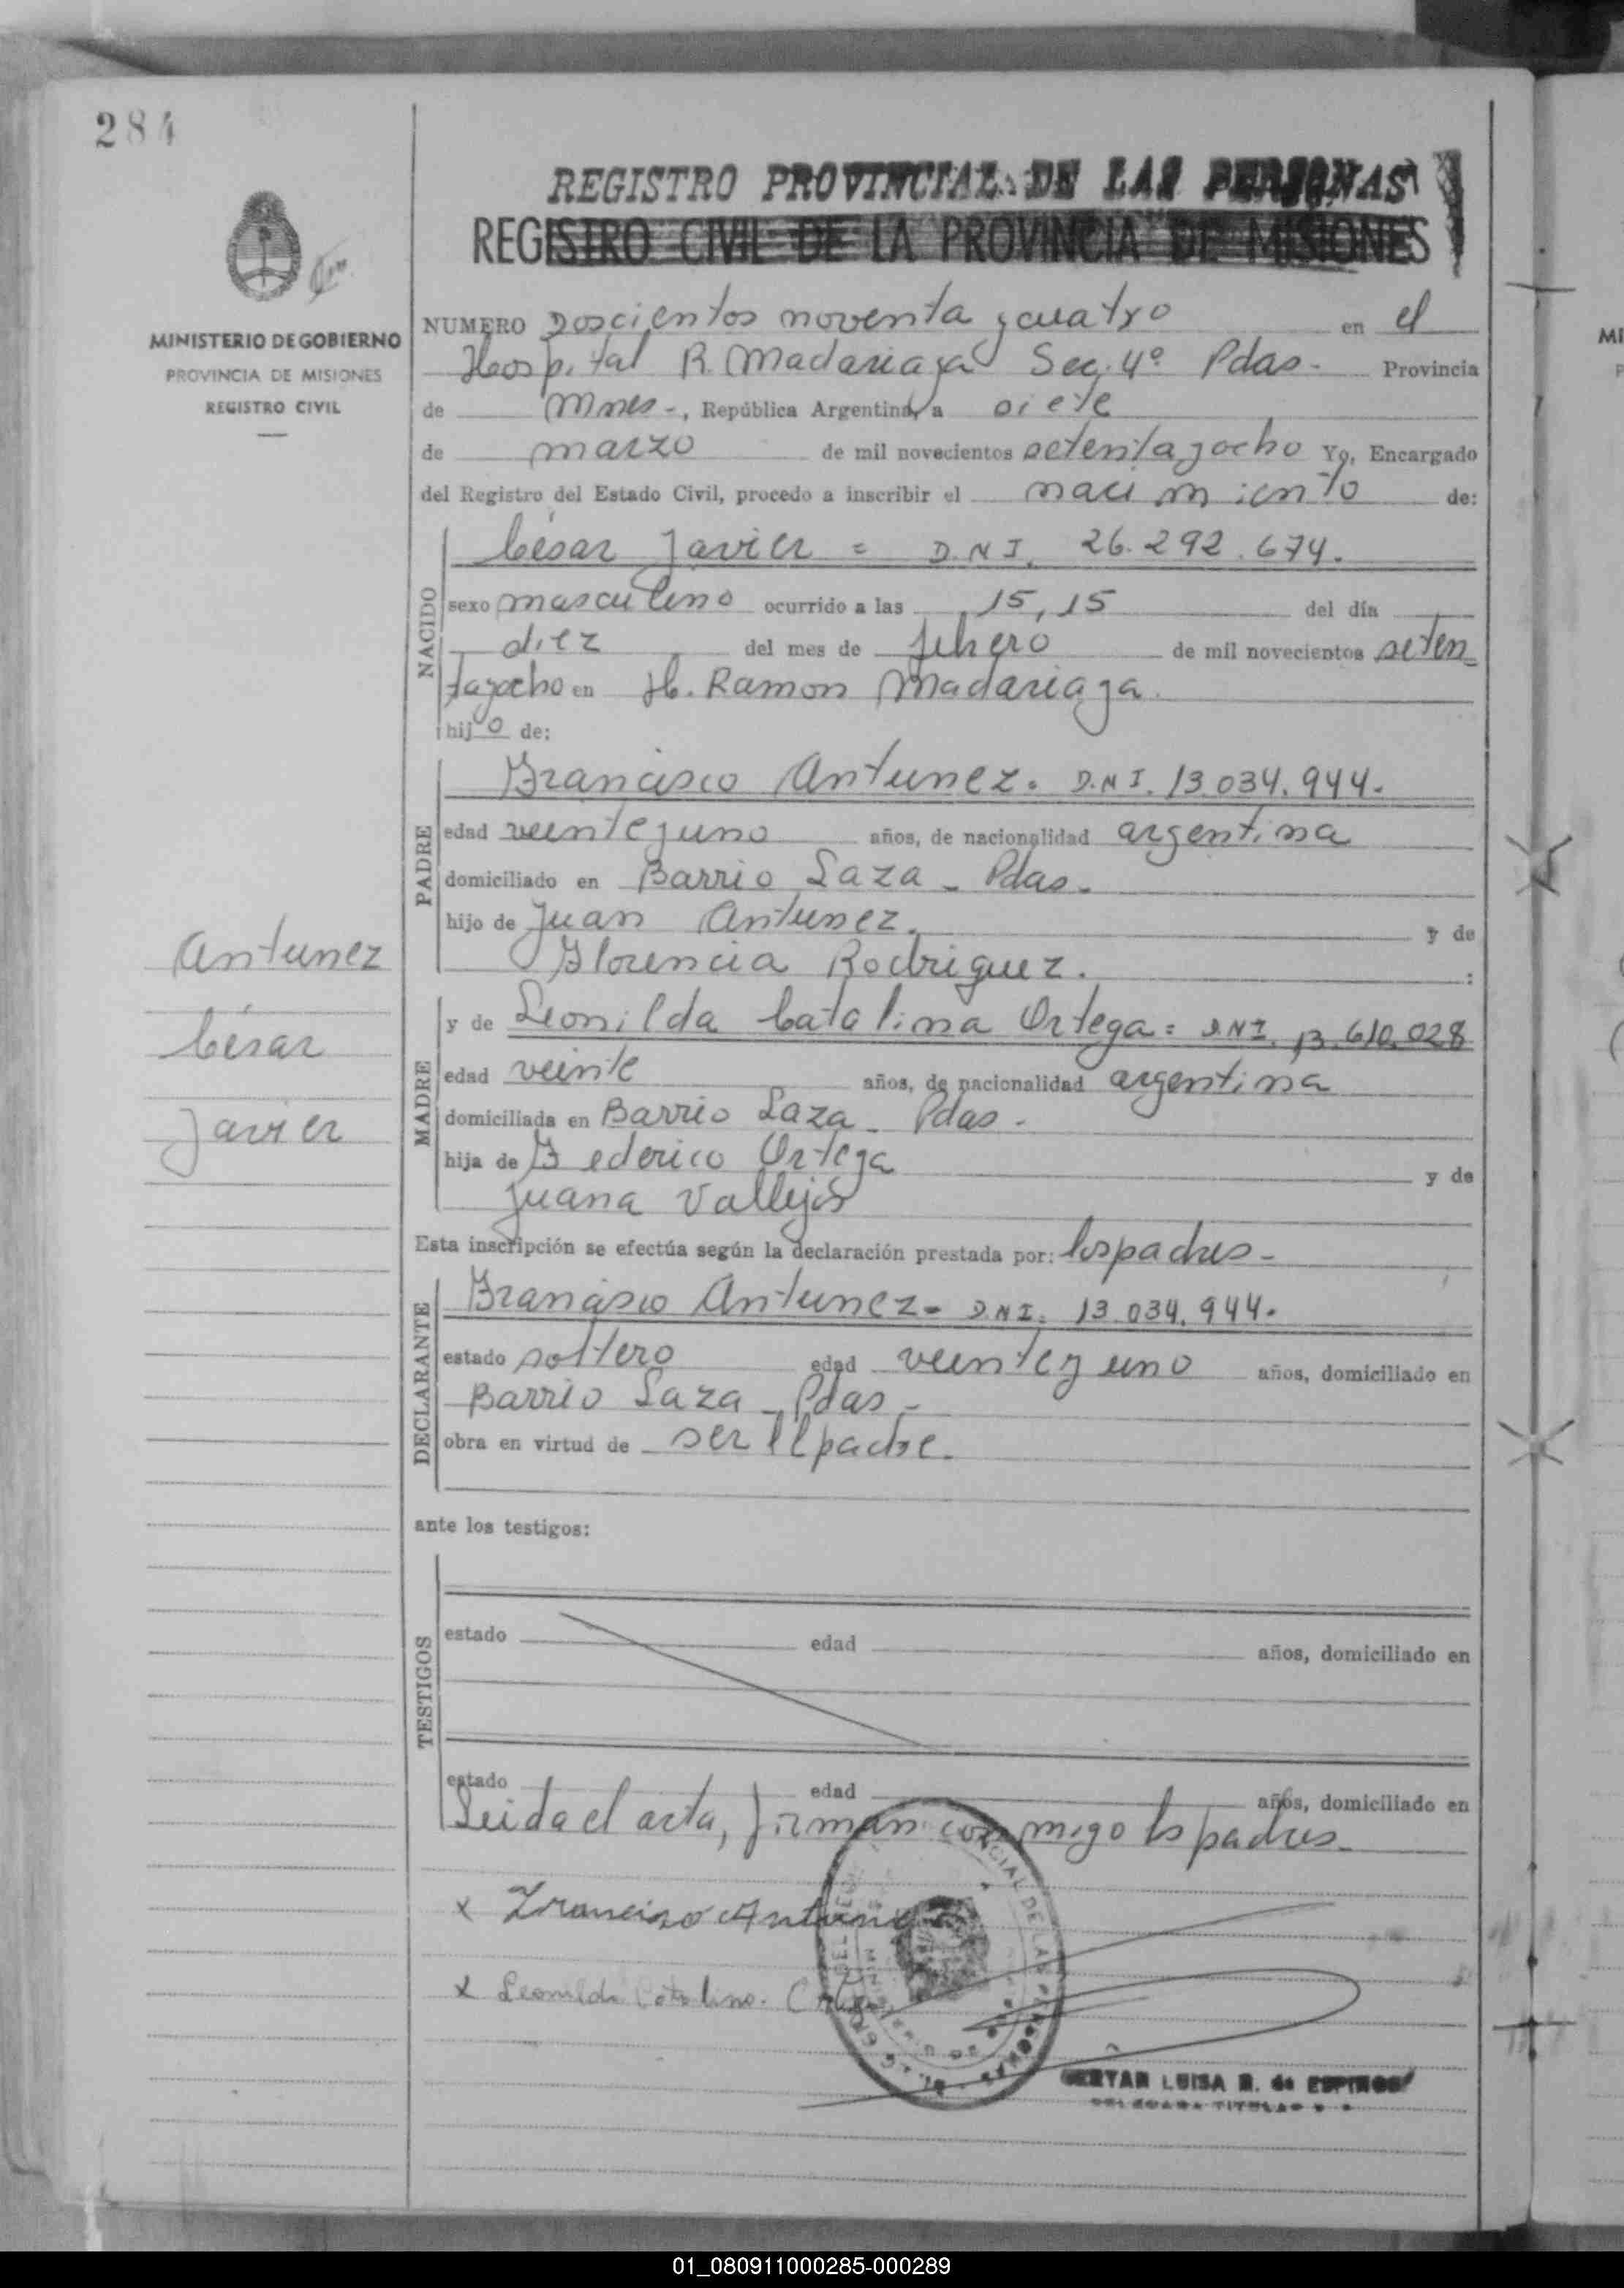 284
REGISTRO PROVINCIAL DE LAS PERSONAS
REGISTRO CIVIL DE LA PROVINCIA DE MISIONES
MINISTERIO DE GOBIERNO
PROVINCIA DE MISIONES
REGISTRO CIVIL
NUMERO Doscientos noventa y cuatro en el
Hospital R. Madariaga Sec. 4º Pdas- Provincia
de Mnes-, República Argentina, a siete
de marzo de mil novecientos setentayocho Yo, Encargado
del Registro del Estado Civil, procedo a inscribir el nacimiento de:
NACIDO
César Javier = D.N.I. 26.292.674.
sexo masculino ocurrido a las 15,15 del día
diez del mes de febrero de mil novecientos seten
tayocho en H. Ramon Madariaga.
hijo de:
PADRE
Francisco Antunez. D.N.I. 13.034.944.
edad veinteyuno años, de nacionalidad argentina
domiciliado en Barrio Laza - Pdas-
hijo de Juan Antunez. y de
Florencia Rodriguez. :
Antunez
César
Javier
MADRE
y de Leonilda Catalina Ortega = D.N.I. 13.610.028
edad veinte años, de nacionalidad argentina
domiciliada en Barrio Laza - Pdas-
hija de Federico Ortega y de
Juana Vallejos
Esta inscripción se efectúa según la declaración prestada por: los padres-
DECLARANTE
Francisco Antunez- D.N.I. 13.034.944.
estado soltero edad veinteyuno años, domiciliado en
Barrio Laza - Pdas-
obra en virtud de ser el padre.
ante los testigos:
TESTIGOS
estado edad años, domiciliado en
estado edad años, domiciliado en
Leida el acta, firman conmigo los padres-
x Francisco Antunez
x Leonilda Catalina. Ortega
LUISA R. de ESPINOSA
DELEGADA TITULAR
01_080911000285-000289